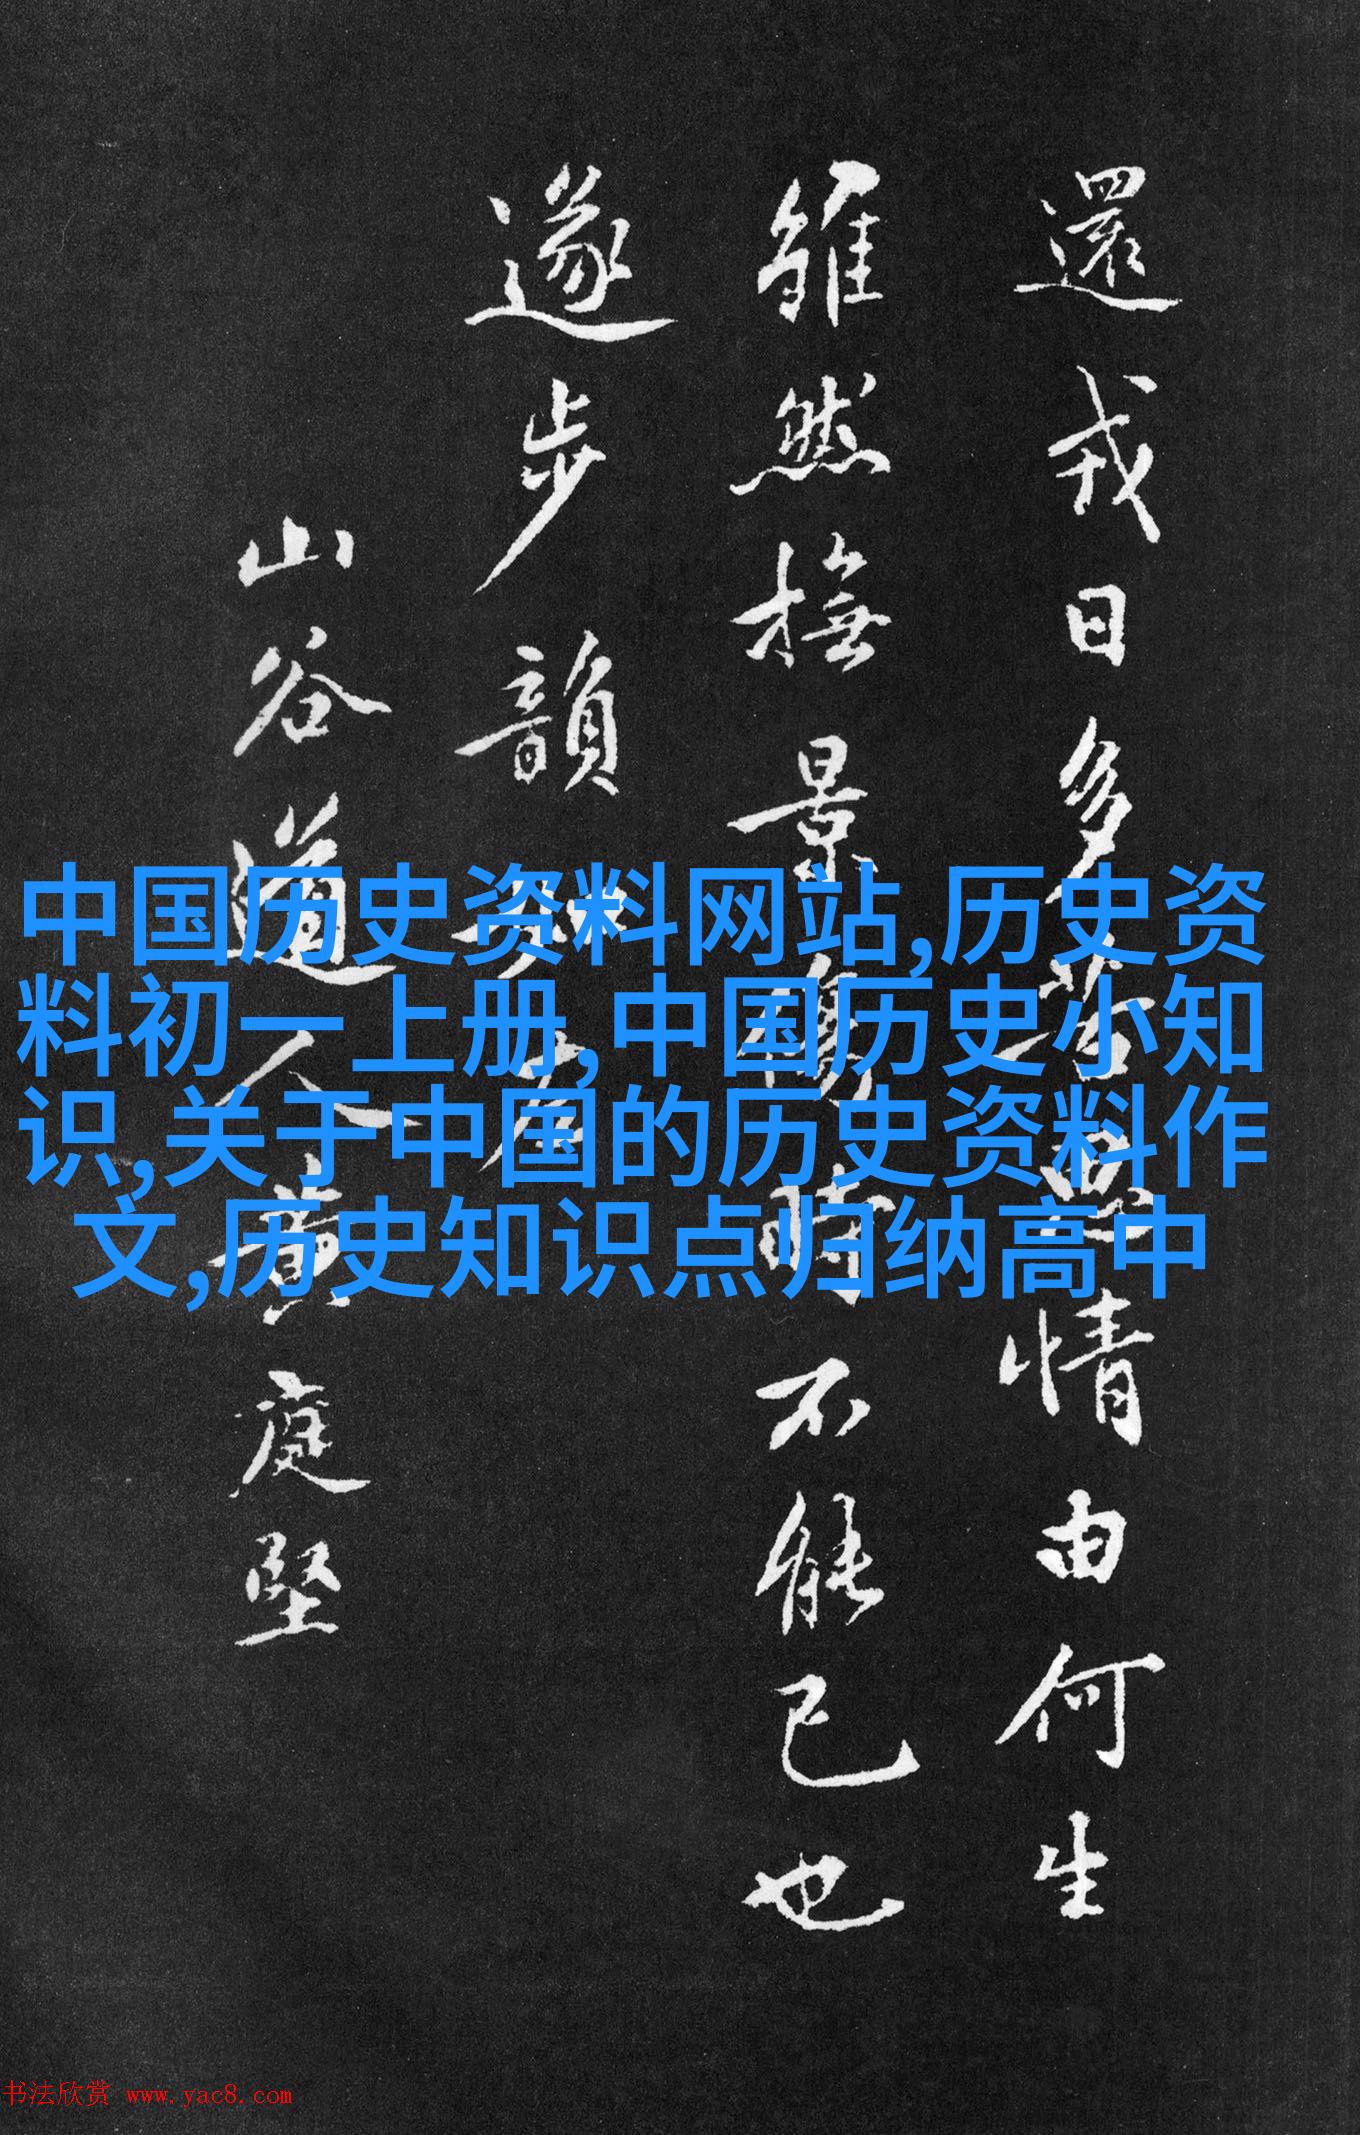 還戎日多情由何生
雖然撫景傷時不能已也
遂步韻
山谷道人黃庭堅
中国历史资料网站,历史资
料初一上册,中国历史小知
识,关于中国的历史资料作
文,历史知识点归纳高中
书法欣赏 www.yac8.com